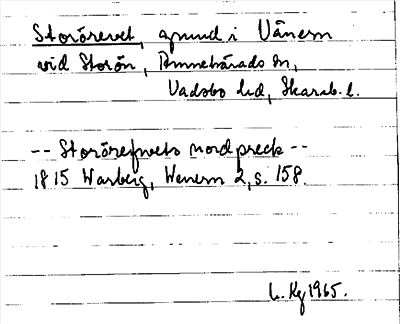 Storörevet, grund i Vänern
vid Storön, Amnehärads sn,
Vadsbo hd, Skarab. l.
-- Storörefwets nord preck --
1815 Warberg, Wenern 2, s. 158.
L. Kg 1965.